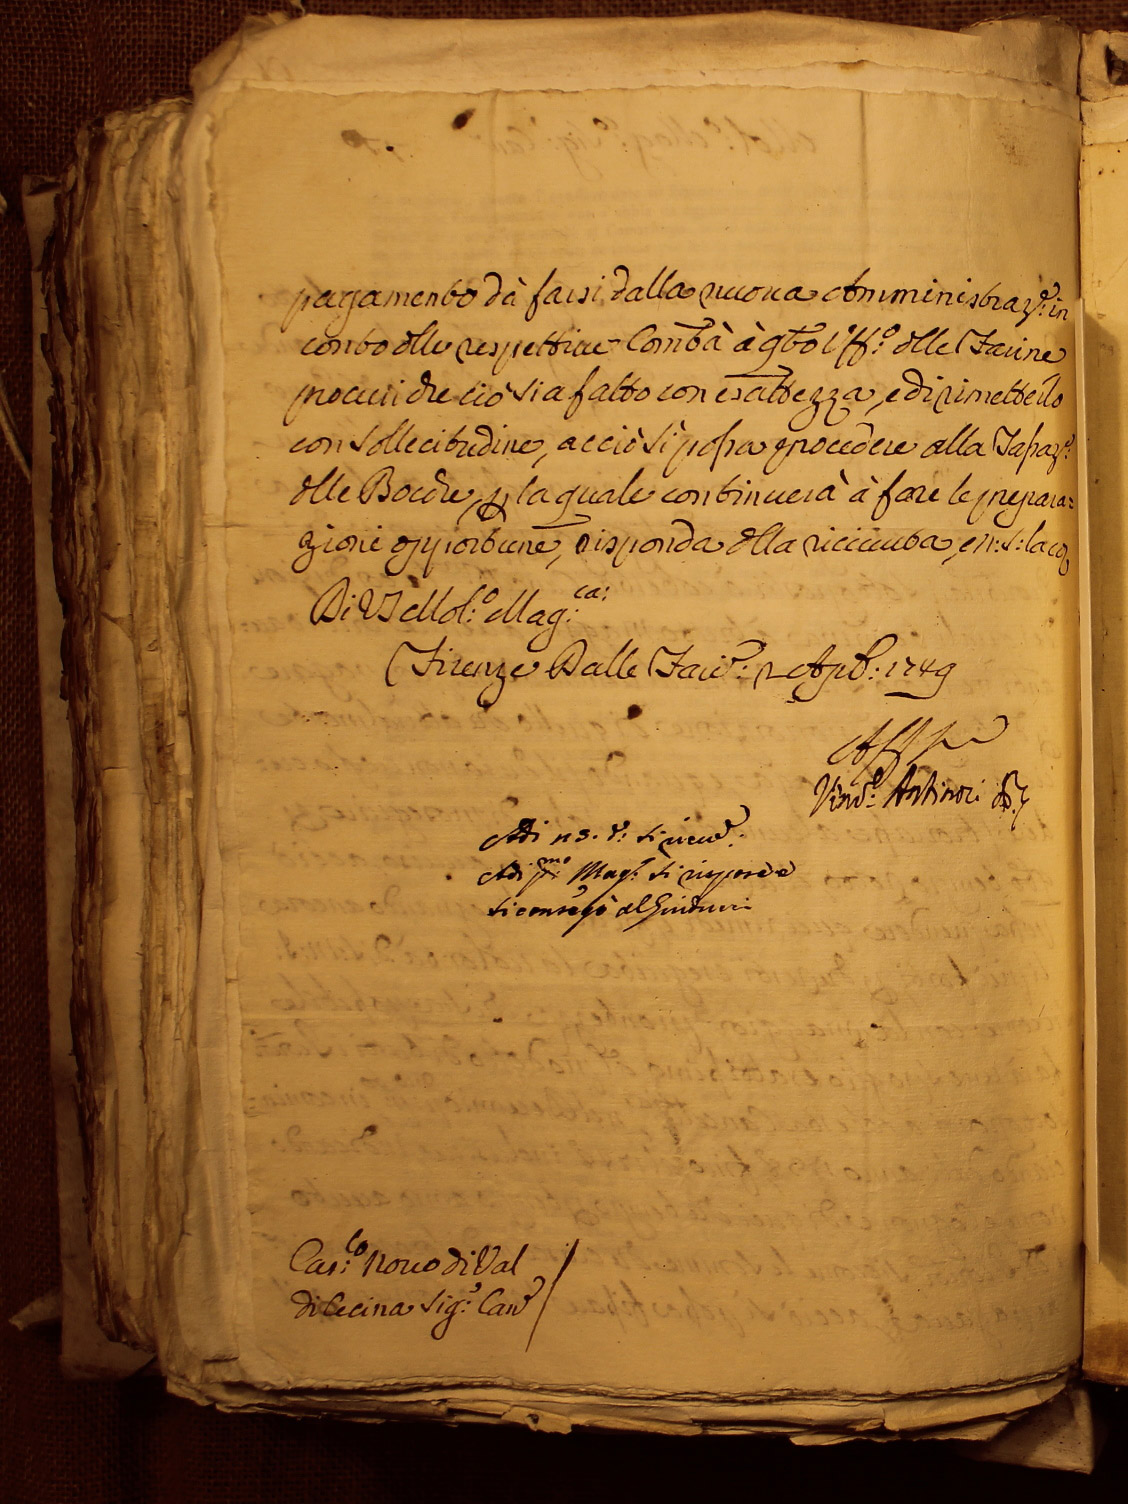 pagamento dà farsi dalla nuova Amministraz.e in
conto delle respettive Com.tà à q.to Uff.o delle Farine
procuri che ciò sia fatto con esattezza, e di rimetterlo
con sollecitudine, acciò si possa procedere alla Tassaz.e
delle Bocche, p la quale continuerà à fare le prepara=
zioni opportune, risponda della ricevuta, e n: s: la
Di VS Mol:o Mag:ca:
Firenze Dalle Farin.e: 2 Apr.e: 1749
Aff.
Vinc.o Antinori
Adi 13. d.o: si ricev.e:
Adi p.mo Mag.o si rispose
si consegnò al
Cas:lo Novo di Val
di Cecina Sig.r Canc.e